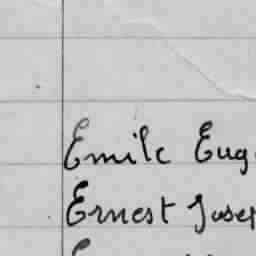 Emile Eug
Ernest Josep